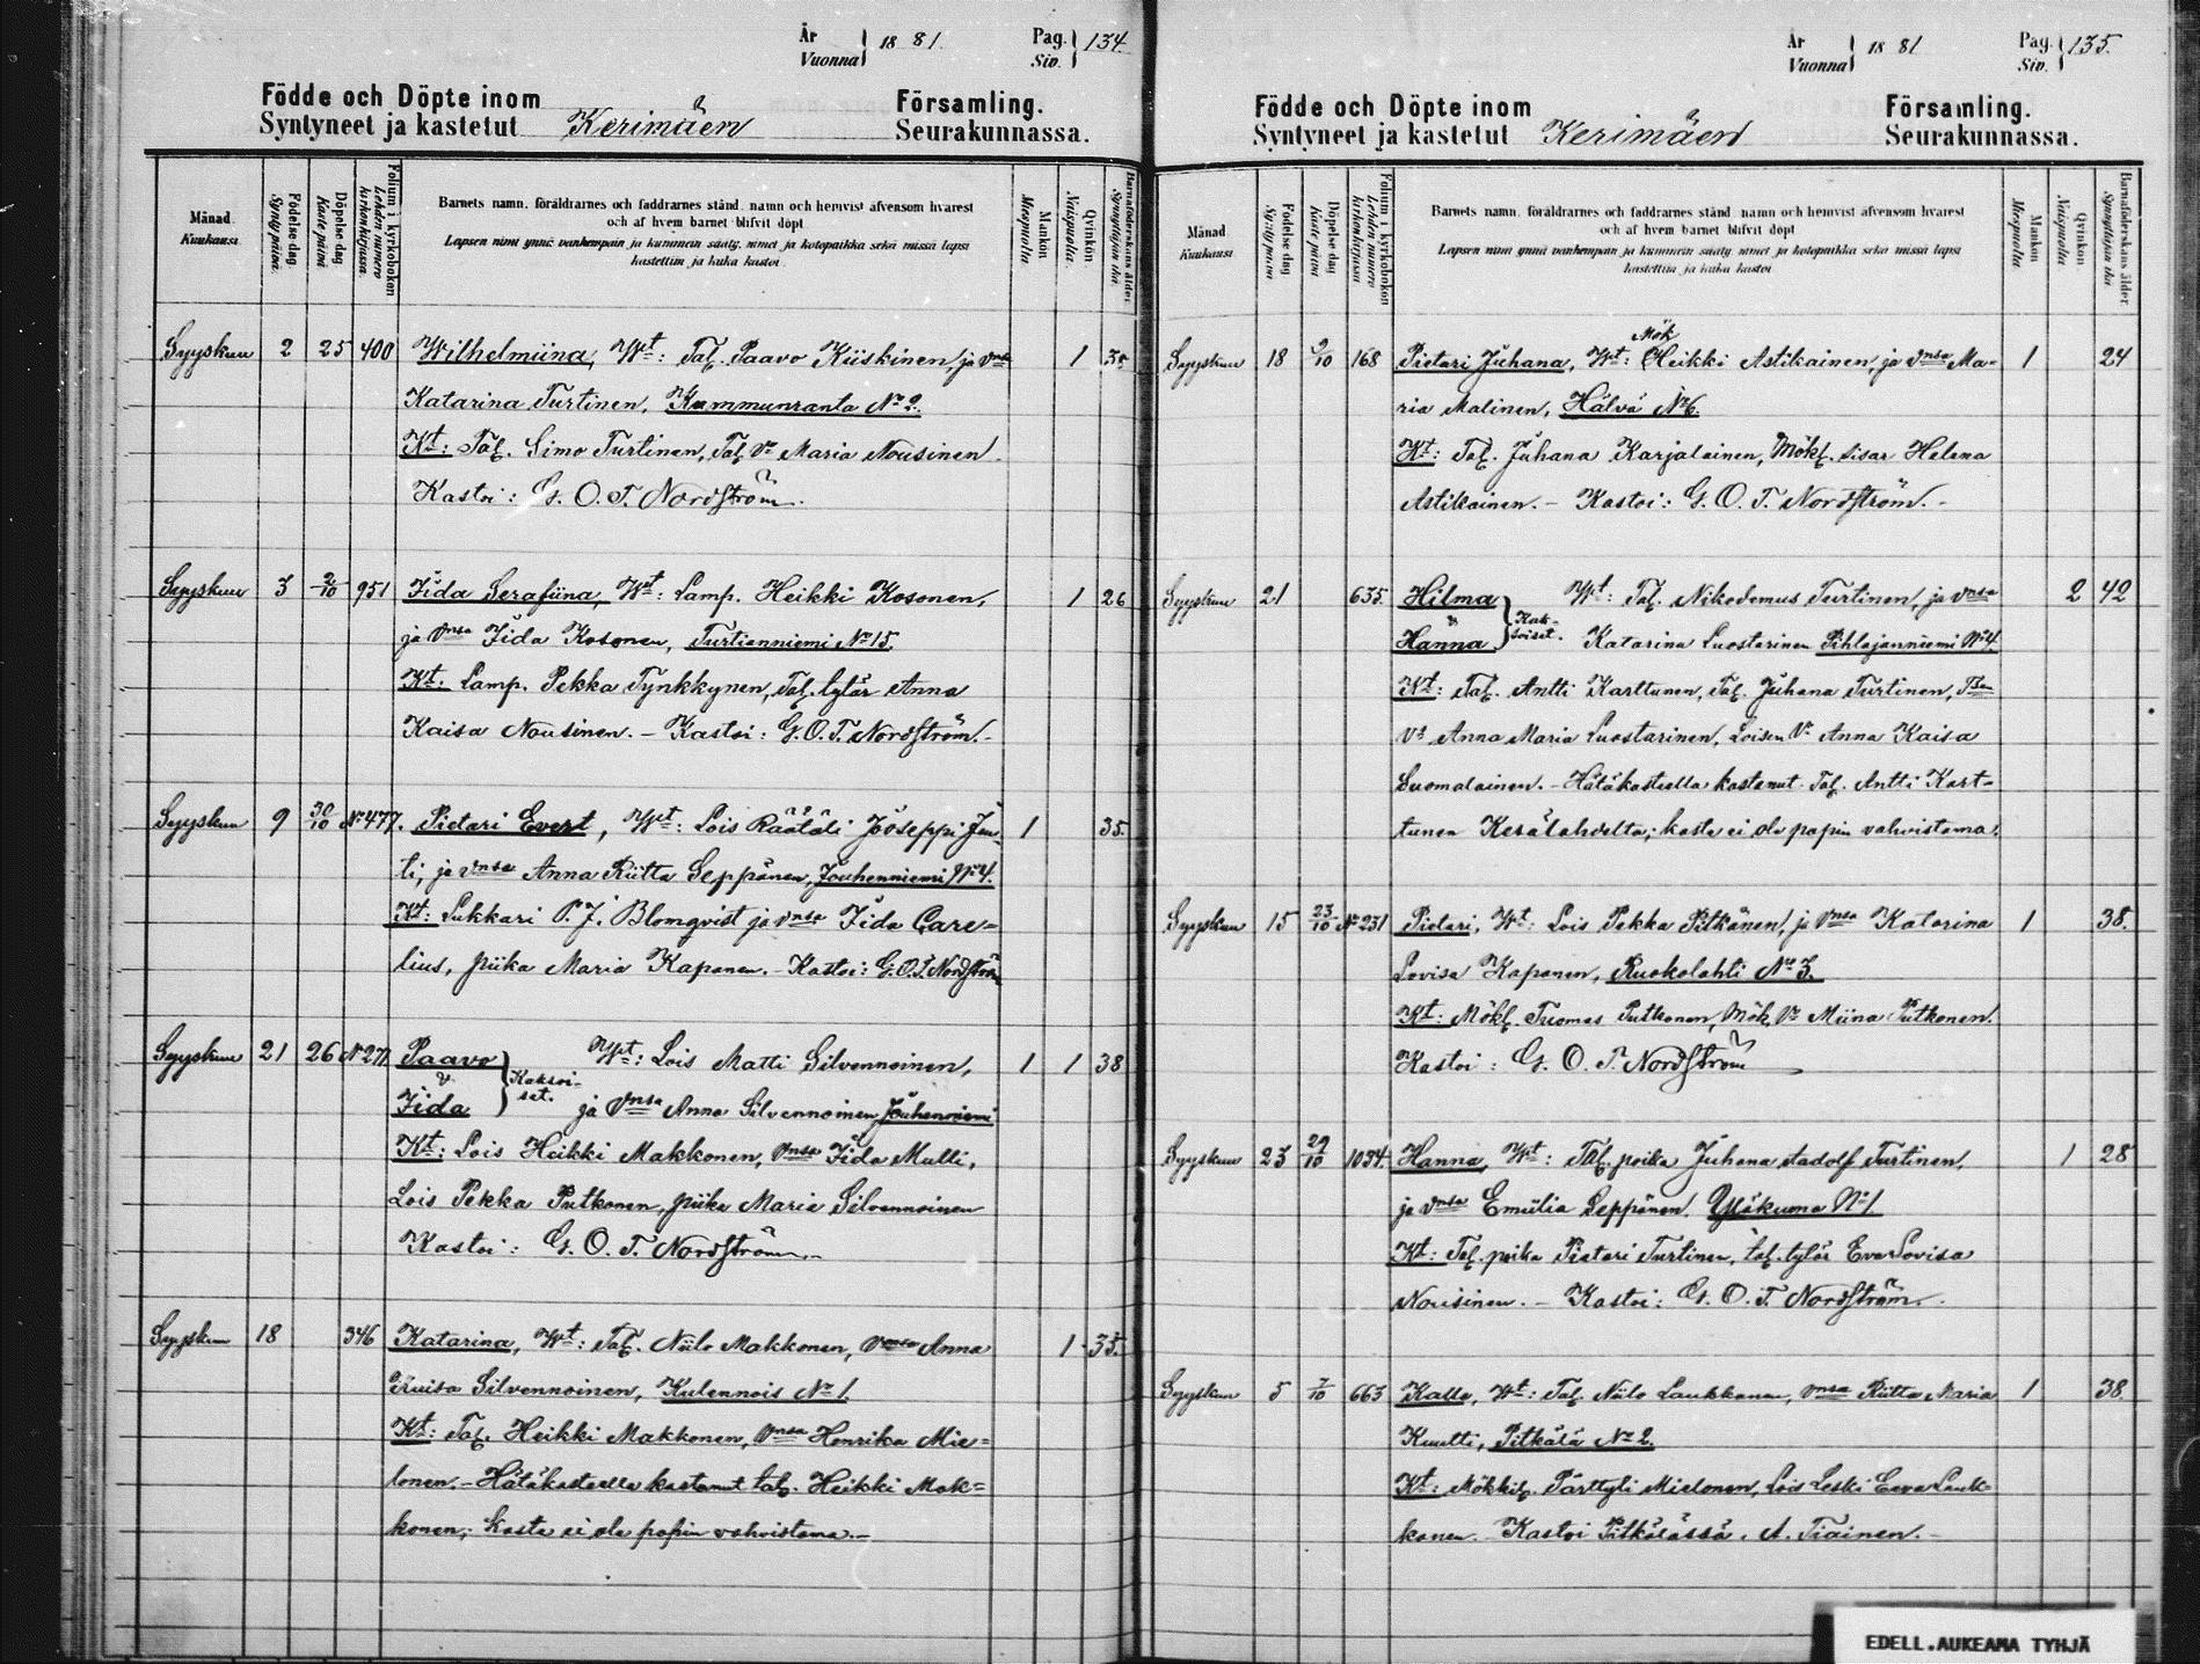 År
Vuonna } 18 81.
Pag.
Siv. } 134.
Födde och Döpte inom
Syntyneet ja kastetut Kerimäen
Församling.
Seurakunnassa.
Månad.
Kuukausi.
Födelse dag
Synty päivä.
Döpelse dag
Kaste päivä
Folium i kyrkoboken
Lehden numero kirkonkirjassa
Barnets namn, föräldrarnes och faddrarnes stånd, namn och hemvist äfvensom hvarest
och af hvem barnet blifvit döpt
Lapsen nimi ynnä vanhempain ja kummein sääty, nimet ja kotopaikka sekä missä lapsi
kastettiin ja kuka kastoi.
Mankön
Miespuolia
Qvinkön
Naispuolia.
Barnaföderskans ålder.
Synnyttäjän ikä.
Syyskuu 2 25 400 Wilhelmiina, Wt: Tal. Paavo Kiiskinen, ja vnsa 1 35.
Katarina Turtinen, Kummunranta No 2.
Kt: Tal. Simo Turtinen, Tal. Vo Maria Nousinen.
Kastoi: G. O. T. Nordström.
Syyskuu 3 2/10 951 Iida Serafiina, Wt: Lamp. Heikki Kosonen, 1 26
ja vnsa Iida Kosonen, Turtianniemi No 15.
Kt: Lamp. Pekka Tynkkynen, Tal. tytär Anna
Kaisa Nousinen. – Kastoi: G. O. T. Nordström.-
Syyskuu 9 30/10 No 477. Pietari Evert, Wt: Lois Räätäli Jooseppi Jun- 1 35.
ti, ja vnsa Anna Riitta Seppänen, Jouhenniemi No 4.
Kt: Lukkari P. J. Blomqvist ja vnsa Iida Care-
lius, piika Maria Kaponen. - Kastoi: G. O. T. Nordström
Syyskuu 21 26 No 271 Paavo Wt: Lois Matti Silvennoinen, 1 1 38
& } Kaksoi-
set.
Iida ja Vnsa Anna Silvennoinen Jouhenniemi
Kt: Lois Heikki Makkonen, vnsa Iida Multi,
Lois Pekka Putkonen, piika Maria Silvennoinen
Kastoi: G. O. T. Nordström.-
Syyskuu 18 346 Katarina, Wt: Tal. Niilo Makkonen, vnsa Anna 1 35.
Kaisa Silvennoinen, Kulennois No 1.
Kt: Tal. Heikki Makkonen, Vnsa Henrika Mie-
lonen. - Hätäkasteella kastanut tal. Heikki Mak-
konen; kaste ei ole papin vahvistama.-
År
Vuonna } 18 81
Pag.
Siv. } 135.
Födde och Döpte inom
Syntyneet ja kastetut Kerimäen
Församling.
Seurakunnassa.
Månad
Kuukausi
Födelse dag
Synty päivä
Döpelse dag
Kaste päivä
Folium i kyrkoboken
Lehden numero kirkonkirjassa
Barnets namn, föräldrarnes och faddrarnes stånd, namn och hemvist äfvensom hvarest
och af hvem barnet blifvit döpt
Lapsen nimi ynnä vanhempain ja kummein sääty nimet ja kotopaikka sekä missä lapsi
kastettiin ja kuka kastoi
Mankön
Miespuolia
Qvinkön
Naispuolia
Barnaföderskans ålder.
Synnyttäjän ikä
Mök
Syyskuu 18 2/10 168 Pietari Juhana, Wt: Heikki Astikainen, ja vnsa Ma- 1 24
ria Malinen, Hälvä No 6.
Kt: Tal. Juhana Karjalainen, Mökl. sisar Helena
Astikainen. - Kastoi: G. O. T. Nordström.-
Syyskuu 21 635. Hilma Wt: Tal. Nikodemus Turtinen, ja vnsa 2 42
& } Kak-
soiset.
Hanna Katarina Luostarinen Pihlajanniemi No 4.
Kt: Tal. Antti Karttunen, Tal. Juhana Turtinen,
Vo Anna Maria Luostarinen, Loisen Vo Anna Kaisa
Suomalainen. - Hätäkasteella kastanut Tal. Antti Kart-
tunen Kesälahdelta; kaste ei ole papin vahvistama.
Syyskuu 15 23/10 No 231 Pietari, Wt: Lois Pekka Pitkänen, ja vnsa Katarina 1 38.
Lovisa Kaponen, Ruokolahti No 3.
Kt: Mökl. Tuomas Putkonen, Mök. Vo Miina Putkonen.
Kastoi: G. O. T. Nordström
Syyskuu 23 29/10 1034. Hanna, Wt: Tal. poika Juhana Aadolf Turtinen, 1 28
ja vnsa Emilia Seppänen. Yläkuona No 1.
Kt: Tal. poika Pietari Turtinen, tal. tytär Eva Lovisa
Nousinen. - Kastoi: G. O. T. Nordström.
Syyskuu 5 7/10 663 Kalle, Wt: Tal. Niilo Laukkanen, vnsa Riitta Maria 1 38.
Kuutti, Pitkälä No 2.
Kt: Mökkil. Pärttyli Mielonen, Lois Leski Eeva Lauk-
kanen. Kastoi Pitkälässä. A. Tiainen.-
EDELL.AUKEAMA TYHJÄ